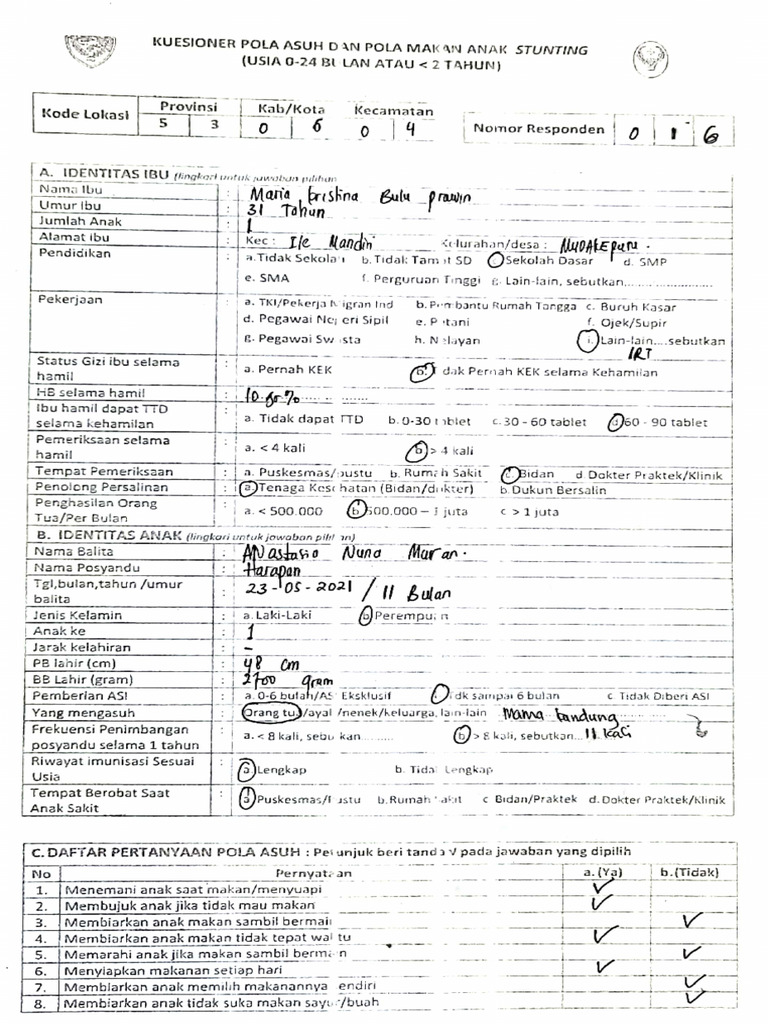 KUESIONER POLA ASUH DAN POLA MAKAN ANAK STUNTING
(USIA 0-24 BULAN ATAU < 2 TAHUN)
Kode Lokasi Provinsi Kab/Kota Kecamatan
5 3 0 6 0 4 Nomor Responden 0 1 6
A. IDENTITAS IBU (lingkari untuk jawaban pilihan
Nama Ibu : Maria Kristina Bulu
Umur Ibu : 31 Tahun
Jumlah Anak : 1
Alamat Ibu : Kec : Ile Mandiri Kelurahan/desa :
Pendidikan : a.Tidak Sekolah b.Tidak Tamat SD c Sekolah Dasar d. SMP
e. SMA f. Perguruan Tinggi g. Lain-lain, sebutkan...........................
Pekerjaan : a. TKI/Pekerja Migran Ind b.Pembantu Rumah Tangga c. Buruh Kasar
d. Pegawai Negeri Sipil e. Petani f. Ojek/Supir
g. Pegawai Swasta h. Nelayan i. Lain-lain....sebutkan
IRT
Status Gizi ibu selama hamil : a. Pernah KEK b. Tidak Pernah KEK selama Kehamilan
HB selama hamil :
Ibu hamil dapat TTD selama kehamilan : a. Tidak dapat TTD b. 0-30 tablet c. 30 - 60 tablet d 60 - 90 tablet
Pemeriksaan selama hamil : a. < 4 kali b > 4 kali
Tempat Pemeriksaan : a. Puskesmas/pustu b. Rumah Sakit c. Bidan d. Dokter Praktek/Klinik
Penolong Persalinan : a. Tenaga Kesehatan (Bidan/dokter) b. Dukun Bersalin
Penghasilan Orang Tua/Per Bulan : a. < 500.000 b 500.000 – 1 juta c > 1 juta
B. IDENTITAS ANAK (lingkari untuk jawaban pilihan)
Nama Balita : ANastasia Nuna Maran.
Nama Posyandu : Harapan
Tgl,bulan,tahun /umur balita : 23-05-2021 / 11 Bulan
Jenis Kelamin : a. Laki-Laki b Perempuan
Anak ke : 1
Jarak kelahiran : -
PB lahir (cm) : 48 cm
BB Lahir (gram) : 2700 gram
Pemberian ASI : a. 0-6 bulan/ASI Eksklusif Tdk sampai 6 bulan c. Tidak Diberi ASI
Yang mengasuh : Orang tua/ayah/nenek/keluarga, lain-lain Mama kandung
Frekuensi Penimbangan posyandu selama 1 tahun : a. < 8 kali, sebutkan.......... b > 8 kali, sebutkan... 11 kali
Riwayat imunisasi Sesuai Usia : a Lengkap b. Tidak Lengkap
Tempat Berobat Saat Anak Sakit : a Puskesmas/Pustu b.Rumah Sakit c Bidan/Praktek d. Dokter Praktek/Klinik
C. DAFTAR PERTANYAAN POLA ASUH : Petunjuk beri tanda V pada jawaban yang dipilih
No Pernyataan a. (Ya) b. (Tidak)
1. Menemani anak saat makan/menyuapi ✓
2. Membujuk anak jika tidak mau makan ✓
3. Membiarkan anak makan sambil bermain ✓
4. Membiarkan anak makan tidak tepat waktu ✓
5. Memarahi anak jika makan sambil bermain ✓
6. Menyiapkan makanan setiap hari ✓
7. Membiarkan anak memilih makanannya sendiri ✓
8. Membiarkan anak tidak suka makan sayur/buah ✓